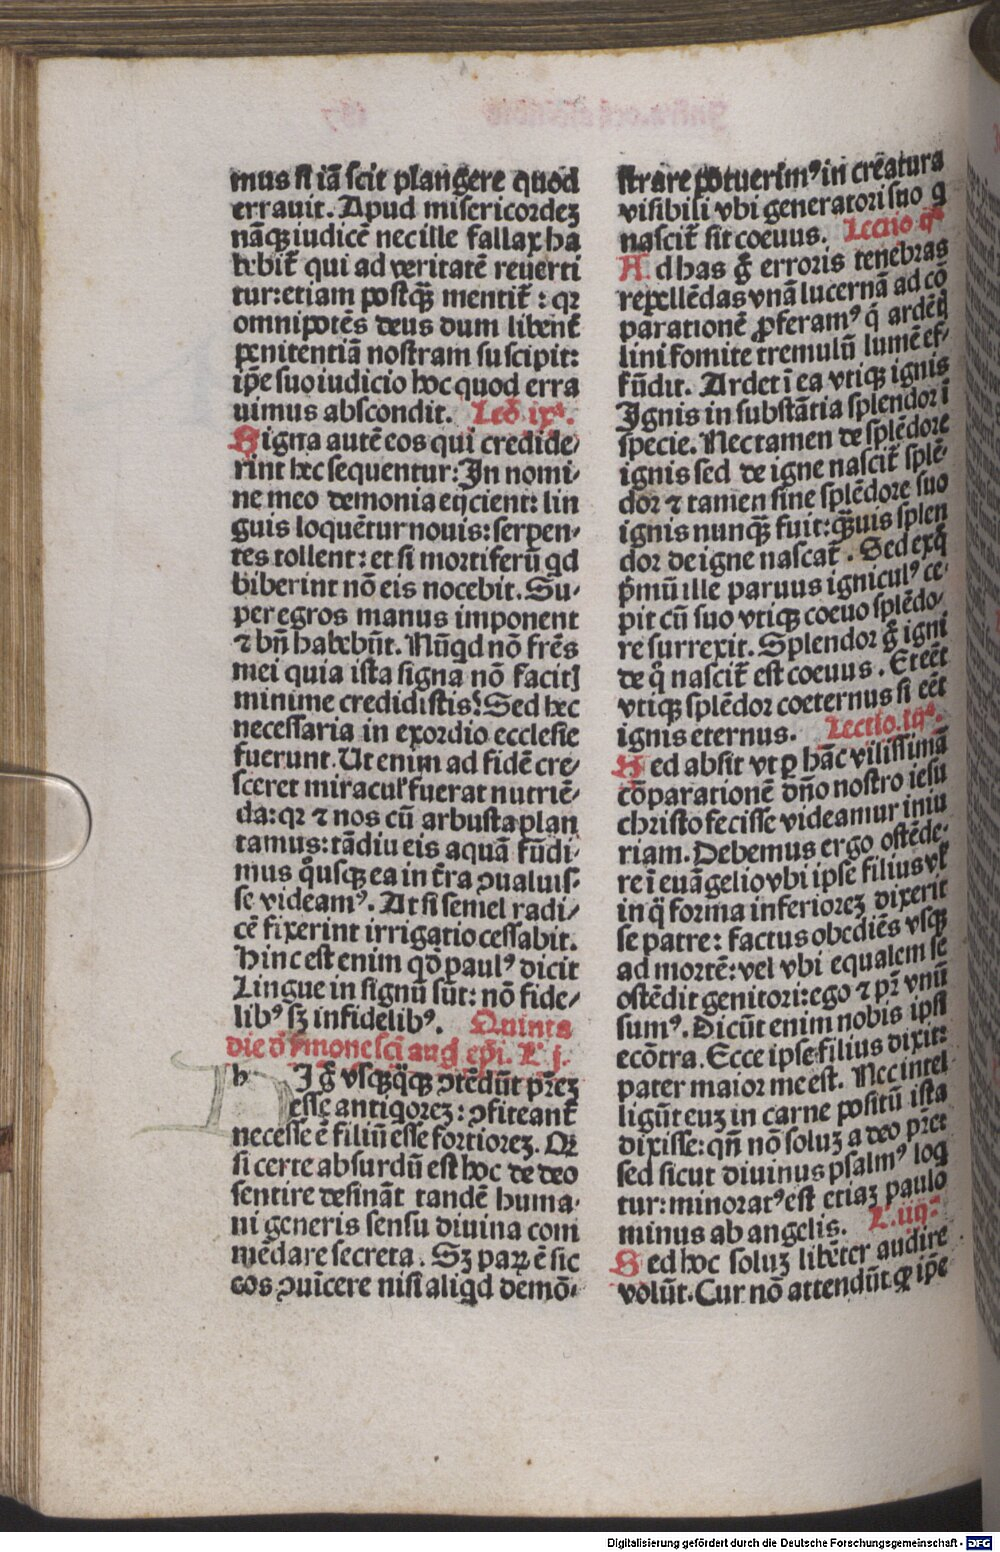 mus si iā scit plangere quod
errauit. Apud misericordeꝫ
nāqꝫ iudicē nec ille fallax ha
bebit̄ qui ad veritatē reuerti
tur: etiam postqꝫ̄ mentit̄ : qꝛ
omnipotēs deus dum libent̄
penitentiā nostram suscipit:
ip̄e suo iudicio hoc quod erra
uimus abscondit. Lcō ixᵃ.
Signa autē eos qui credide/
rint hec sequentur: In nomi-
ne meo demonia eijcient: lin
guis loquētur nouis: serpen-
tes tollent: et si mortiferū qd
biberint nō eis nocebit. Su-
per egros manus imponent
⁊ bn̄ habebūt. Nūqd nō frēs
mei quia ista signa nō facitꝭ
minime credidistis? Sed hec
necessaria in exordio ecclesie
fuerunt. Ut enim ad fidē cre/
sceret miracul̓ fuerat nutriē/
da: qꝛ ⁊ nos cū arbusta plan
tamus: tādiu eis aquā fūdi-
mus qͦusqꝫ ea in t̄ra ꝯualuis-
se videamꝰ. At si semel radi/
cē fixerint irrigatio cessabit.
Hinc est enim qd̄ paulꝰ dicit
Lingue in signū sūt: nō fide/
libꝰ sꝫ infidelibꝰ. Quinta
die d̓ ẜmone scī augꝭ ep̄i. Lꝰ j.
h Iꝰ gͦ vsqꝫq̄qꝫ ꝯtēdūt pr̄eꝫ
esse antiqoreꝫ: ꝯfiteant̄
necesse ē filiū esse fortioreꝫ. Qꝛ
si certe absurdū est hoc de deo
sentire desināt tandē huma-
ni generis sensu diuina com
mēdare secreta. Sꝫ paꝝ ē sic
eos ꝯuīcere nisi aliqd demō-
strare potuerimꝰ in creatura
visibili vbi generatori suo q
nascit̄ sit coeuus. Lectio ijᵃ
Ad has gͦ erroris tenebras
repellēdas vnā lucernā ad cō
parationē ꝓferamꝰ q̄ ardēti
lini fomite tremulū lumē ef-
fūdit. Ardet ī ea vtiqꝫ ignis
Ignis in substātia splendor ī
specie. Nec tamen de splēdore
ignis sed de igne nascit̄ splē-
dor ⁊ tamen sine splēdore suo
ignis nunqꝫ̄ fuit: qꝫ̄uis splen
dor de igne nascat̄. Sed exq̊
p̄mū ille paruus igniculꝰ ce-
pit cū suo vtiqꝫ coeuo splēdo/
re surrexit. Splendor gͦ igni
de qͦ nascit̄ est coeuus. Et eēt
vtiqꝫ splēdor coeternus si eēt
ignis eternus. Lectio. iijᵃ.
Sed absit vt ꝑ hāc vilissimā
cōparationē dn̄o nostro iesu
christo fecisse videamur iniu
riam. Debemus ergo ostēde-
re ī euāgelio vbi ipse filius vl̓
in q̄ forma inferioreꝫ dixerit
se patre: factus obediēs vsqꝫ
ad mortē: vel vbi equalem se
ostēdit genitori: ego ⁊ pr̄ vnū
sumꝰ. Dicūt enim nobis ipsi
ecōtra. Ecce ipse filius dixit:
pater maior me est. Nec intel
ligūt euꝫ in carne positū ista
dixisse: qn̄ nō soluꝫ a deo pr̄et
sed sicut diuinus psalmꝰ loq
tur: minoratꝰ est etiaꝫ paulo
minus ab angelis. L. iiijᵃ
Sed hoc soluꝫ libēter audire
volūt. Cur nō attendūt ꝙ ip̄e
Digitalisierung gefördert durch die Deutsche Forschungsgemeinschaft - DFG